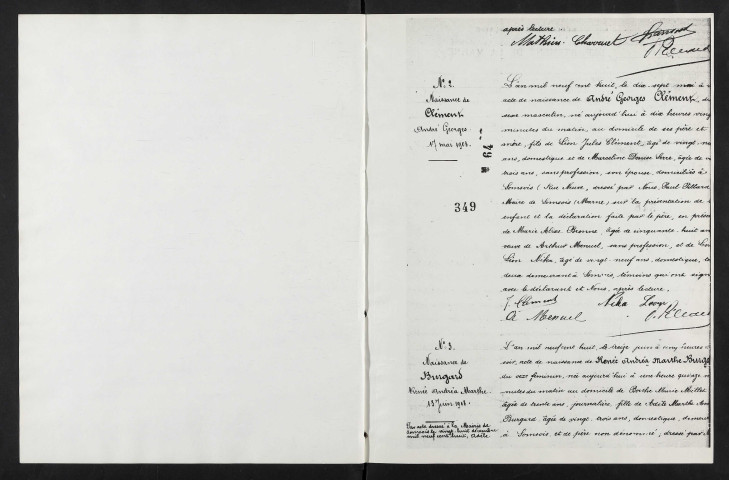 après lecture
Mathieu Chavenet
N° 2.
Naissance de
Clément
André Georges
17 mai 1908.
64
349
L'an mil neuf cent huit, le dix sept mai à
acte de naissance de André Georges Clément, du
sexe masculin, né aujourd'hui à dix heures vingt
minutes du matin, au domicile de ses père et
mère, fils de Léon Jules Clément, âgé de vingt
ans, domestique et de Marceline Denise Serre, âgée de
trois ans, sans profession, son épouse, domiciliés à
Somsois, dressé par Nous, Paul
Maire de Somsois (Marne), sur la présentation de
enfant et la déclaration faite par le père, en
de Marie Alisa Bronne âgée de cinquante huit
veuve de Arthur Menuel, sans profession, et de
Léon Nika, âgé de vingt neuf ans, domestique,
deux demeurant à Somsois, témoins qui ont signé
avec le déclarant et Nous, après lecture.
J. Clément Nika Léon
A Menuel
N° 3.
Naissance de
Burgard
Renée Andréa Marthe
13 Juin 1908.
L'an mil neuf cent huit, le treize juin à cinq heures
soir, acte de naissance de Renée Andréa Marthe
du sexe féminin, née aujourd'hui à une heure quinze
minutes du matin au domicile de Berthe Marie Millet
âgée de trente ans, journalière, fille de Marthe
Burgard âgée de vingt trois ans, domestique,
à Somsois, et de père non dénommé; dressé par
Par acte dressé à la Mairie de
Somsois le vingt huit décembre
mil neuf cent huit,